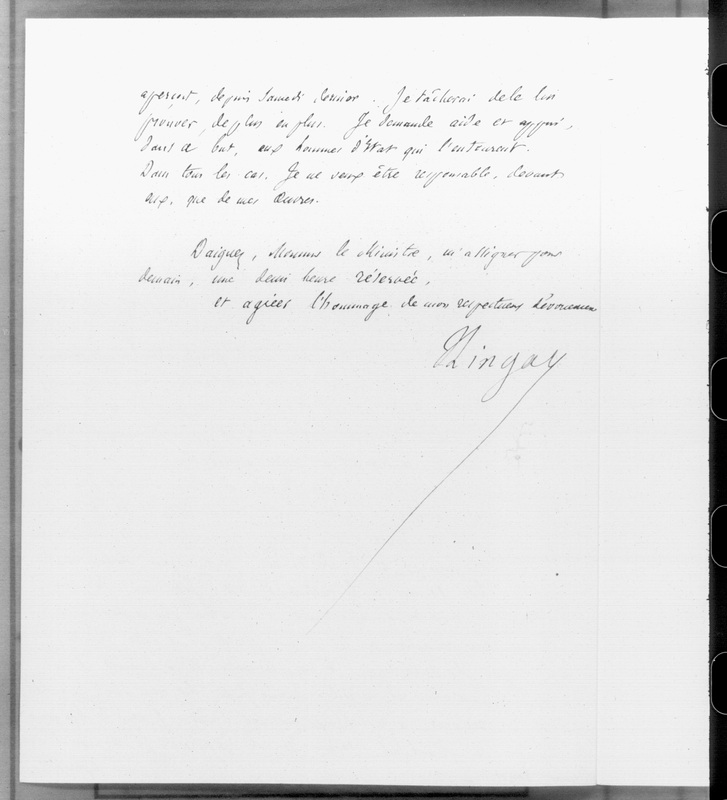 aperçoit, depuis Samedi dernier. Je tâcherai de le lui
prouver, de plus en plus. Je demande aide et appui,
dans ce but, aux hommes d'Etat qui l'entourent.
Dans tous les cas. Je ne veux être responsable, devant
eux, que de mes Œuvres.
Daignez, Monsieur le Ministre, m'assigner pour
demain, une demi heure réservée,
et agréer l'hommage de mon respectueux dévouement